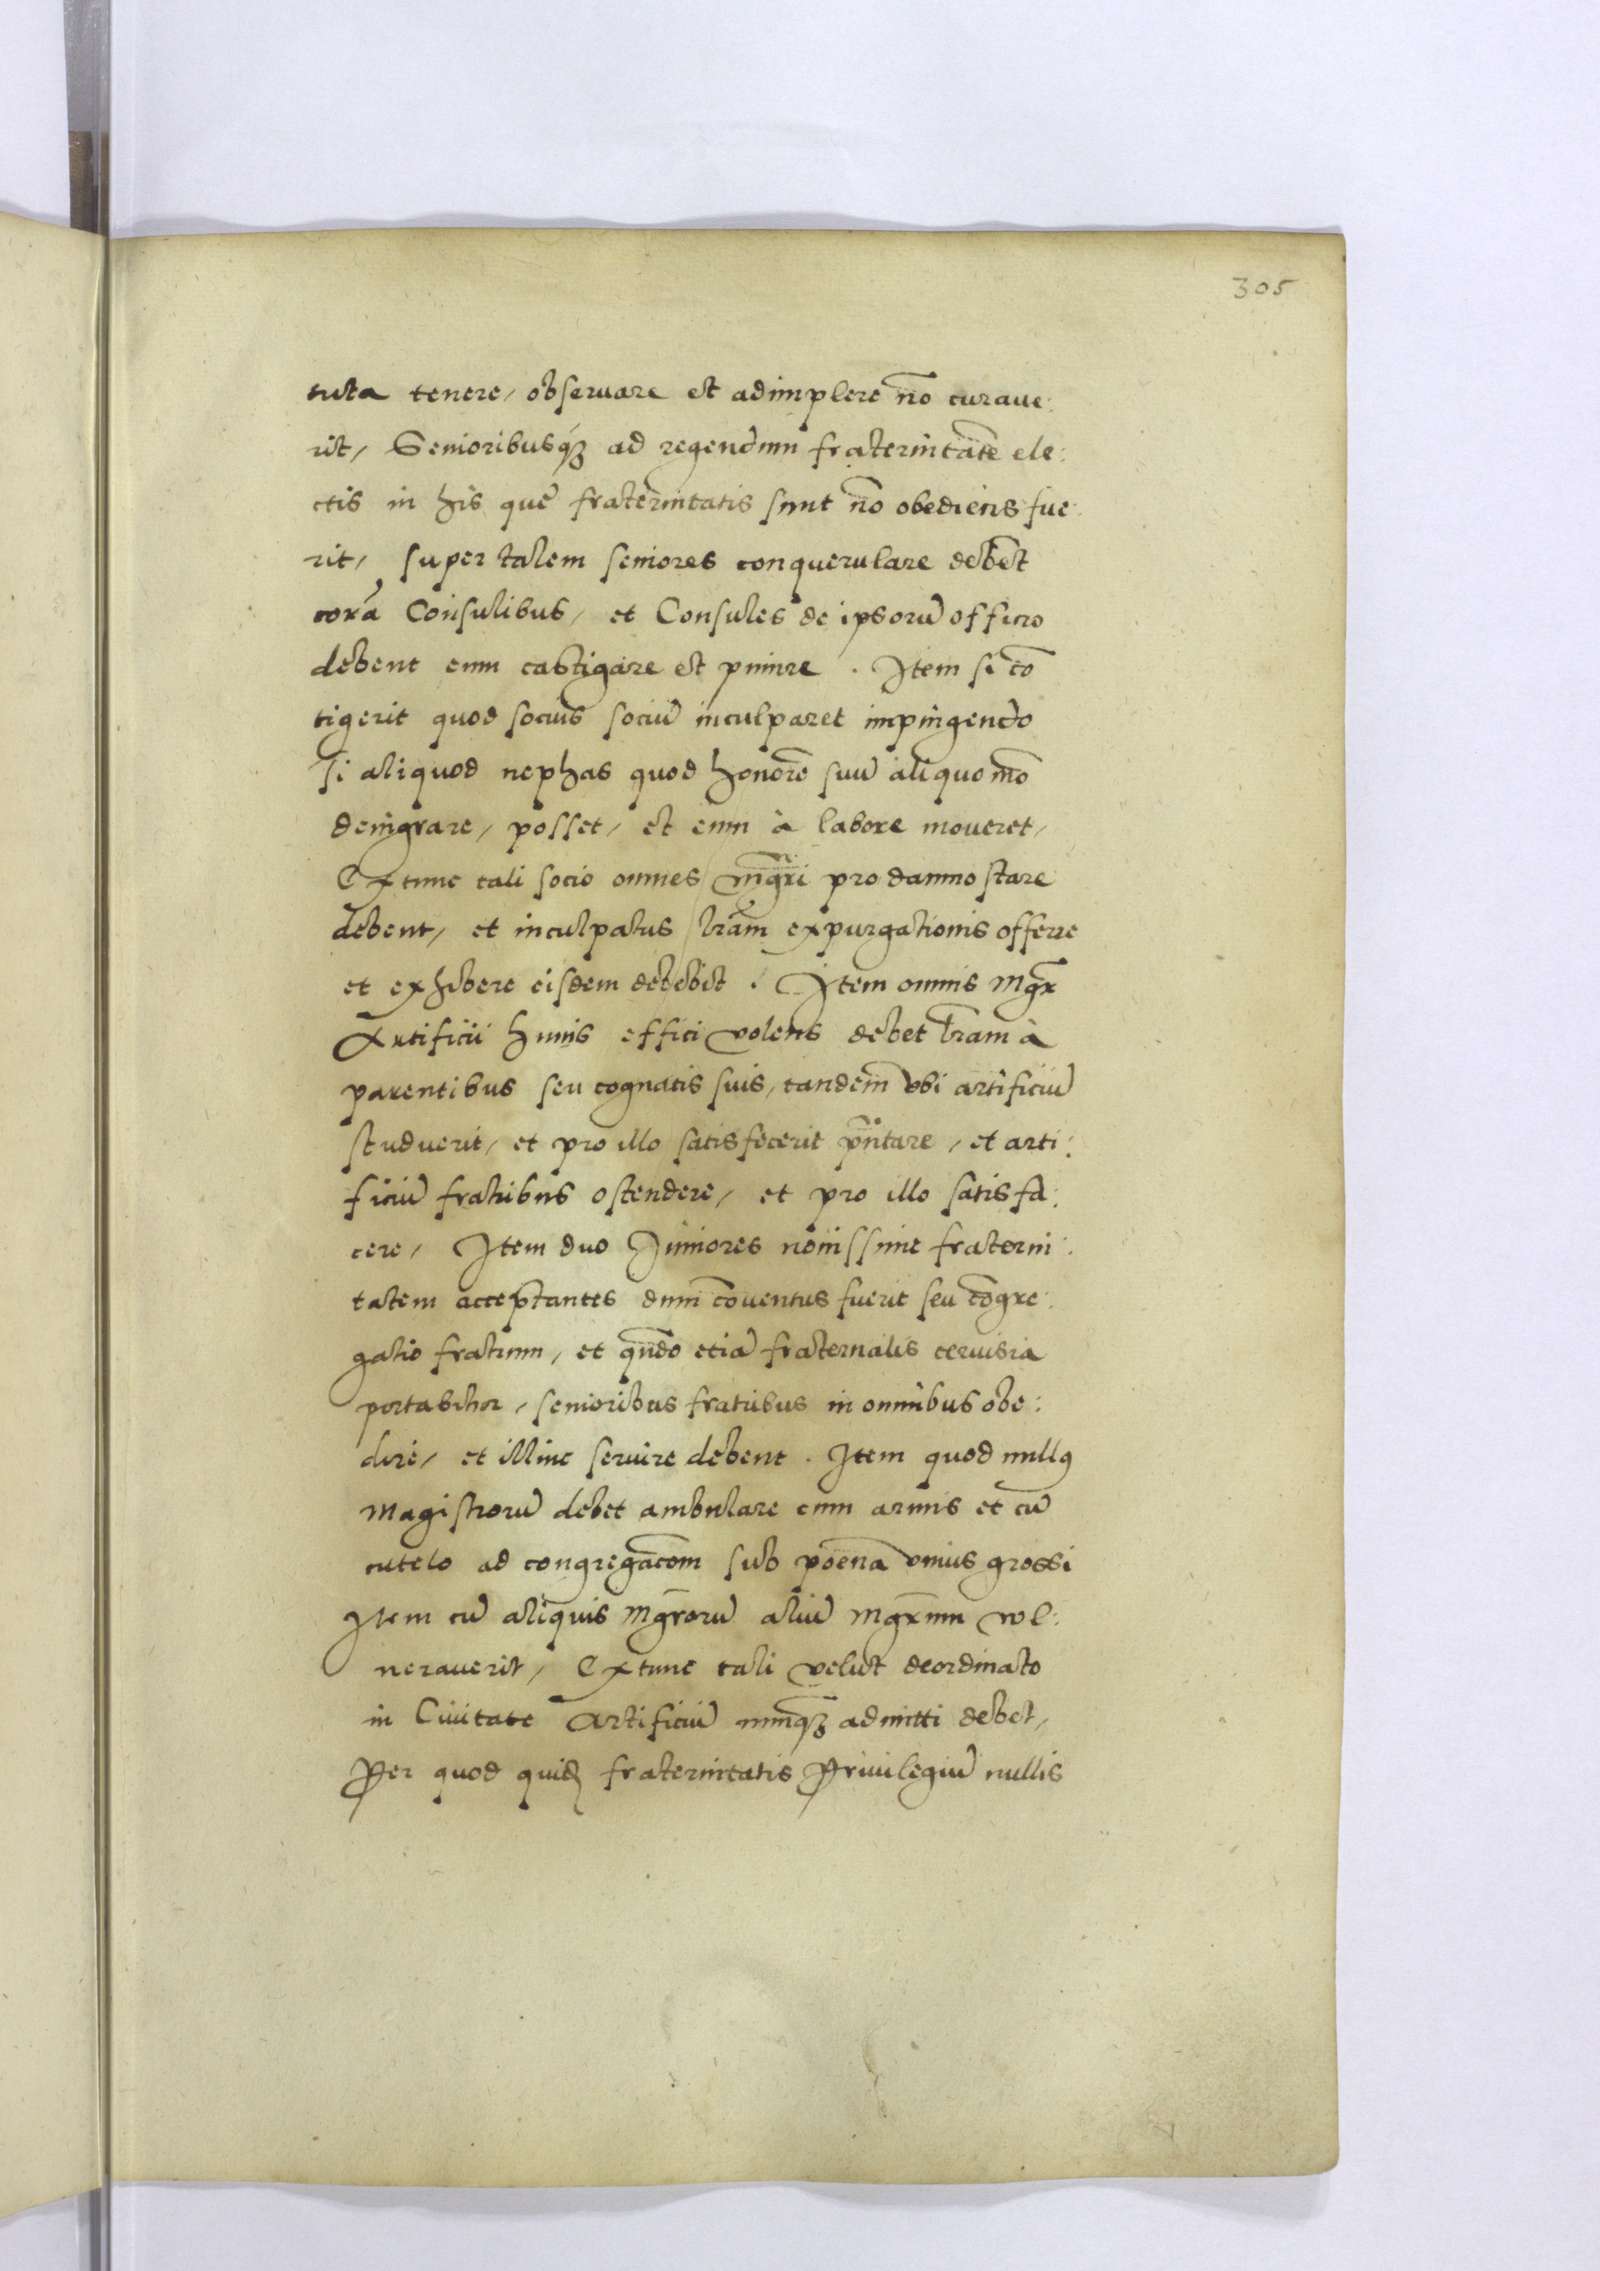 305
tuta tenere, observare et adimplere nō curaue:
rit, Senioribusq̃ ad regendum fraternitatē ele:
ctis in his que fraternitatis sunt nō obediens fue:
rit, super talem seniores conquerulare debēt
corā Consulibus, et Consules de ipsorū officio
debent eum castigare et punire. Item si cō
tigerit quod socius sociū inculparet impingendo
si aliquod nephas quod honorē suū aliquo mō
denigrare, posset, et eum à labore moueret,
Extunc tali socio omnes mg̃ri pro damno stare
debent, et inculpatus lr̃am expurgationis offerre
et exhibere eisdem debebit. Item omnis Mgr̃
Artificii huius effici volens debet lr̃am à
parentibus seu cognatis suis, tandem vbi artificiū
studuerit, et pro illo satisfecerit pñtare, et arti:
ficiū fratribus ostendere, et pro illo satisfa:
cere, Item duo Juniores nouissime fraterni:
tatem acceptantes dum cōuentus fuerit seu cōgre:
gatio fratrum, et qũdo etiā fraternalis ceruisia
portabitur, senioribus fratribus in omnibus obe:
dire, et illinc seruire debent. Item quod nullꝰ
Magistrorū debet ambulare cum armis et cū
cutelo ad congregac̃om sub poena vnius grossi
Item cū aliquis Mgr̃orū aliū Mgr̃um vol:
nerauerit, Extunc tali velut deordinato
in Ciuitate Artificiū nunqz admitti debet,
Per quod quid̃ fraternitatis Priuilegiū nullis